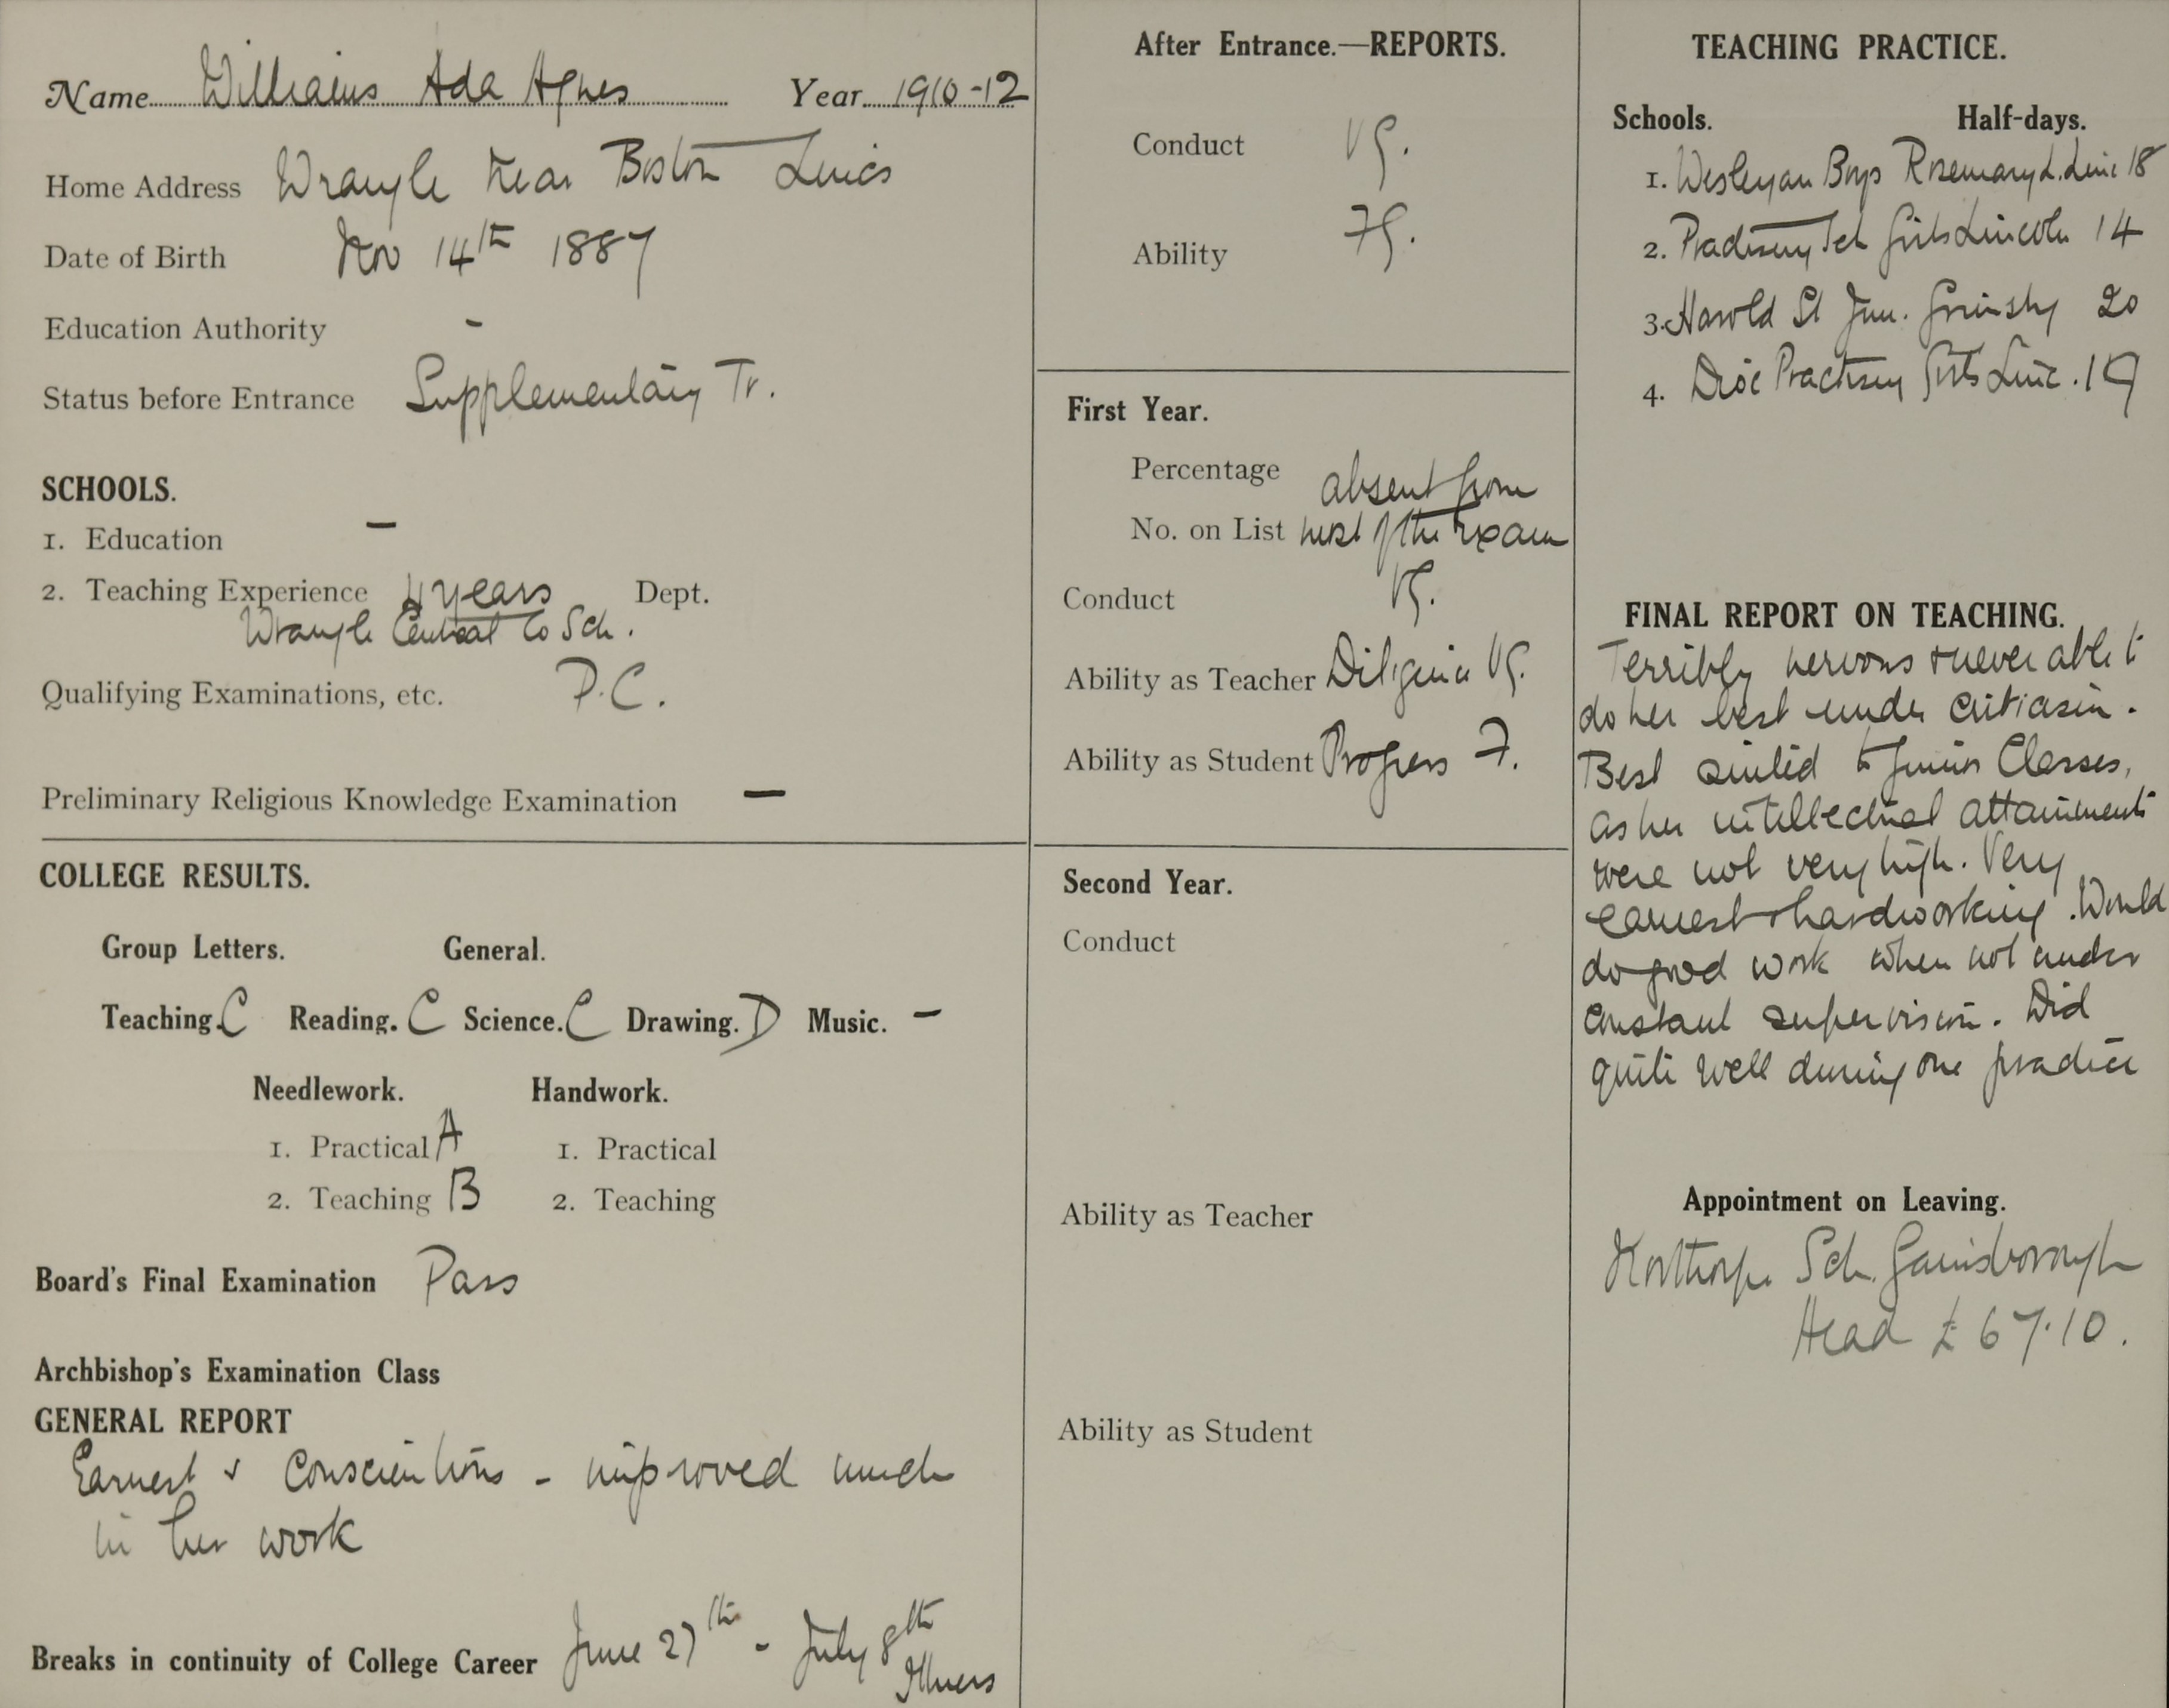 Name Williams Ada Agnes Year 1910-12
Home Address Wrangle near Boston Lincs
Date of Birth Nov 14th 1887
Education Authority -
Status before Entrance Supplementary Tr.
SCHOOLS.
1. Education -
2. Teaching Experience 4 years Dept.
Wrangle Central Co Sch.
Qualifying Examinations, etc. P.C.
Preliminary Religious Knowledge Examination -
COLLEGE RESULTS.
Group Letters. General.
Teaching. C Reading. C Science. C Drawing. D Music. -
Needlework. Handwork.
1. Practical A 1. Practical
2. Teaching B 2. Teaching
Board's Final Examination Pass
Archbishop's Examination Class
GENERAL REPORT
Earnest & conscientious - improved much
in her work
Breaks in continuity of College Career June 27th - July 8th
Illness
After Entrance.—REPORTS.
Conduct VG.
Ability FG.
First Year.
Percentage absent from
No. on List most of the Exam
Conduct VG.
Ability as Teacher Diligence VG.
Ability as Student Progress F.
Second Year.
Conduct
Ability as Teacher
Ability as Student
TEACHING PRACTICE.
Schools. Half-days.
1. Wesleyan Boys Rosemary L. Linc 18
2. Practising Sch Girls Lincoln 14
3. Harold St Jun. Grimsby 20
4. Dioc Practising Girls Linc. 19
FINAL REPORT ON TEACHING.
Terribly nervous & never able to
do her best under criticism.
Best suited to Junior Classes,
as her intellectual attainments
were not very high. Very
earnest & hardworking. Would
do good work when not under
constant supervision. Did
quite well during one practice
Appointment on Leaving.
Northorpe Sch. Gainsborough
Head £67.10.